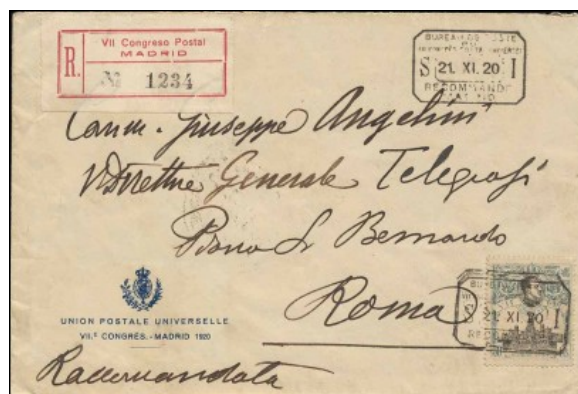 VII Congreso Postal
MADRID
R.
No 1234
BUREAU DE POSTE
S 21. XI. 20 I
RECOMMANDÉ
Comm. Giuseppe Angelini
V. Direttore Generale Telegrafi
S. Bernardo
Roma
S 21 XI 20 I
UNION POSTALE UNIVERSELLE
VII.E CONGRÈS.-MADRID 1920
Raccomandata